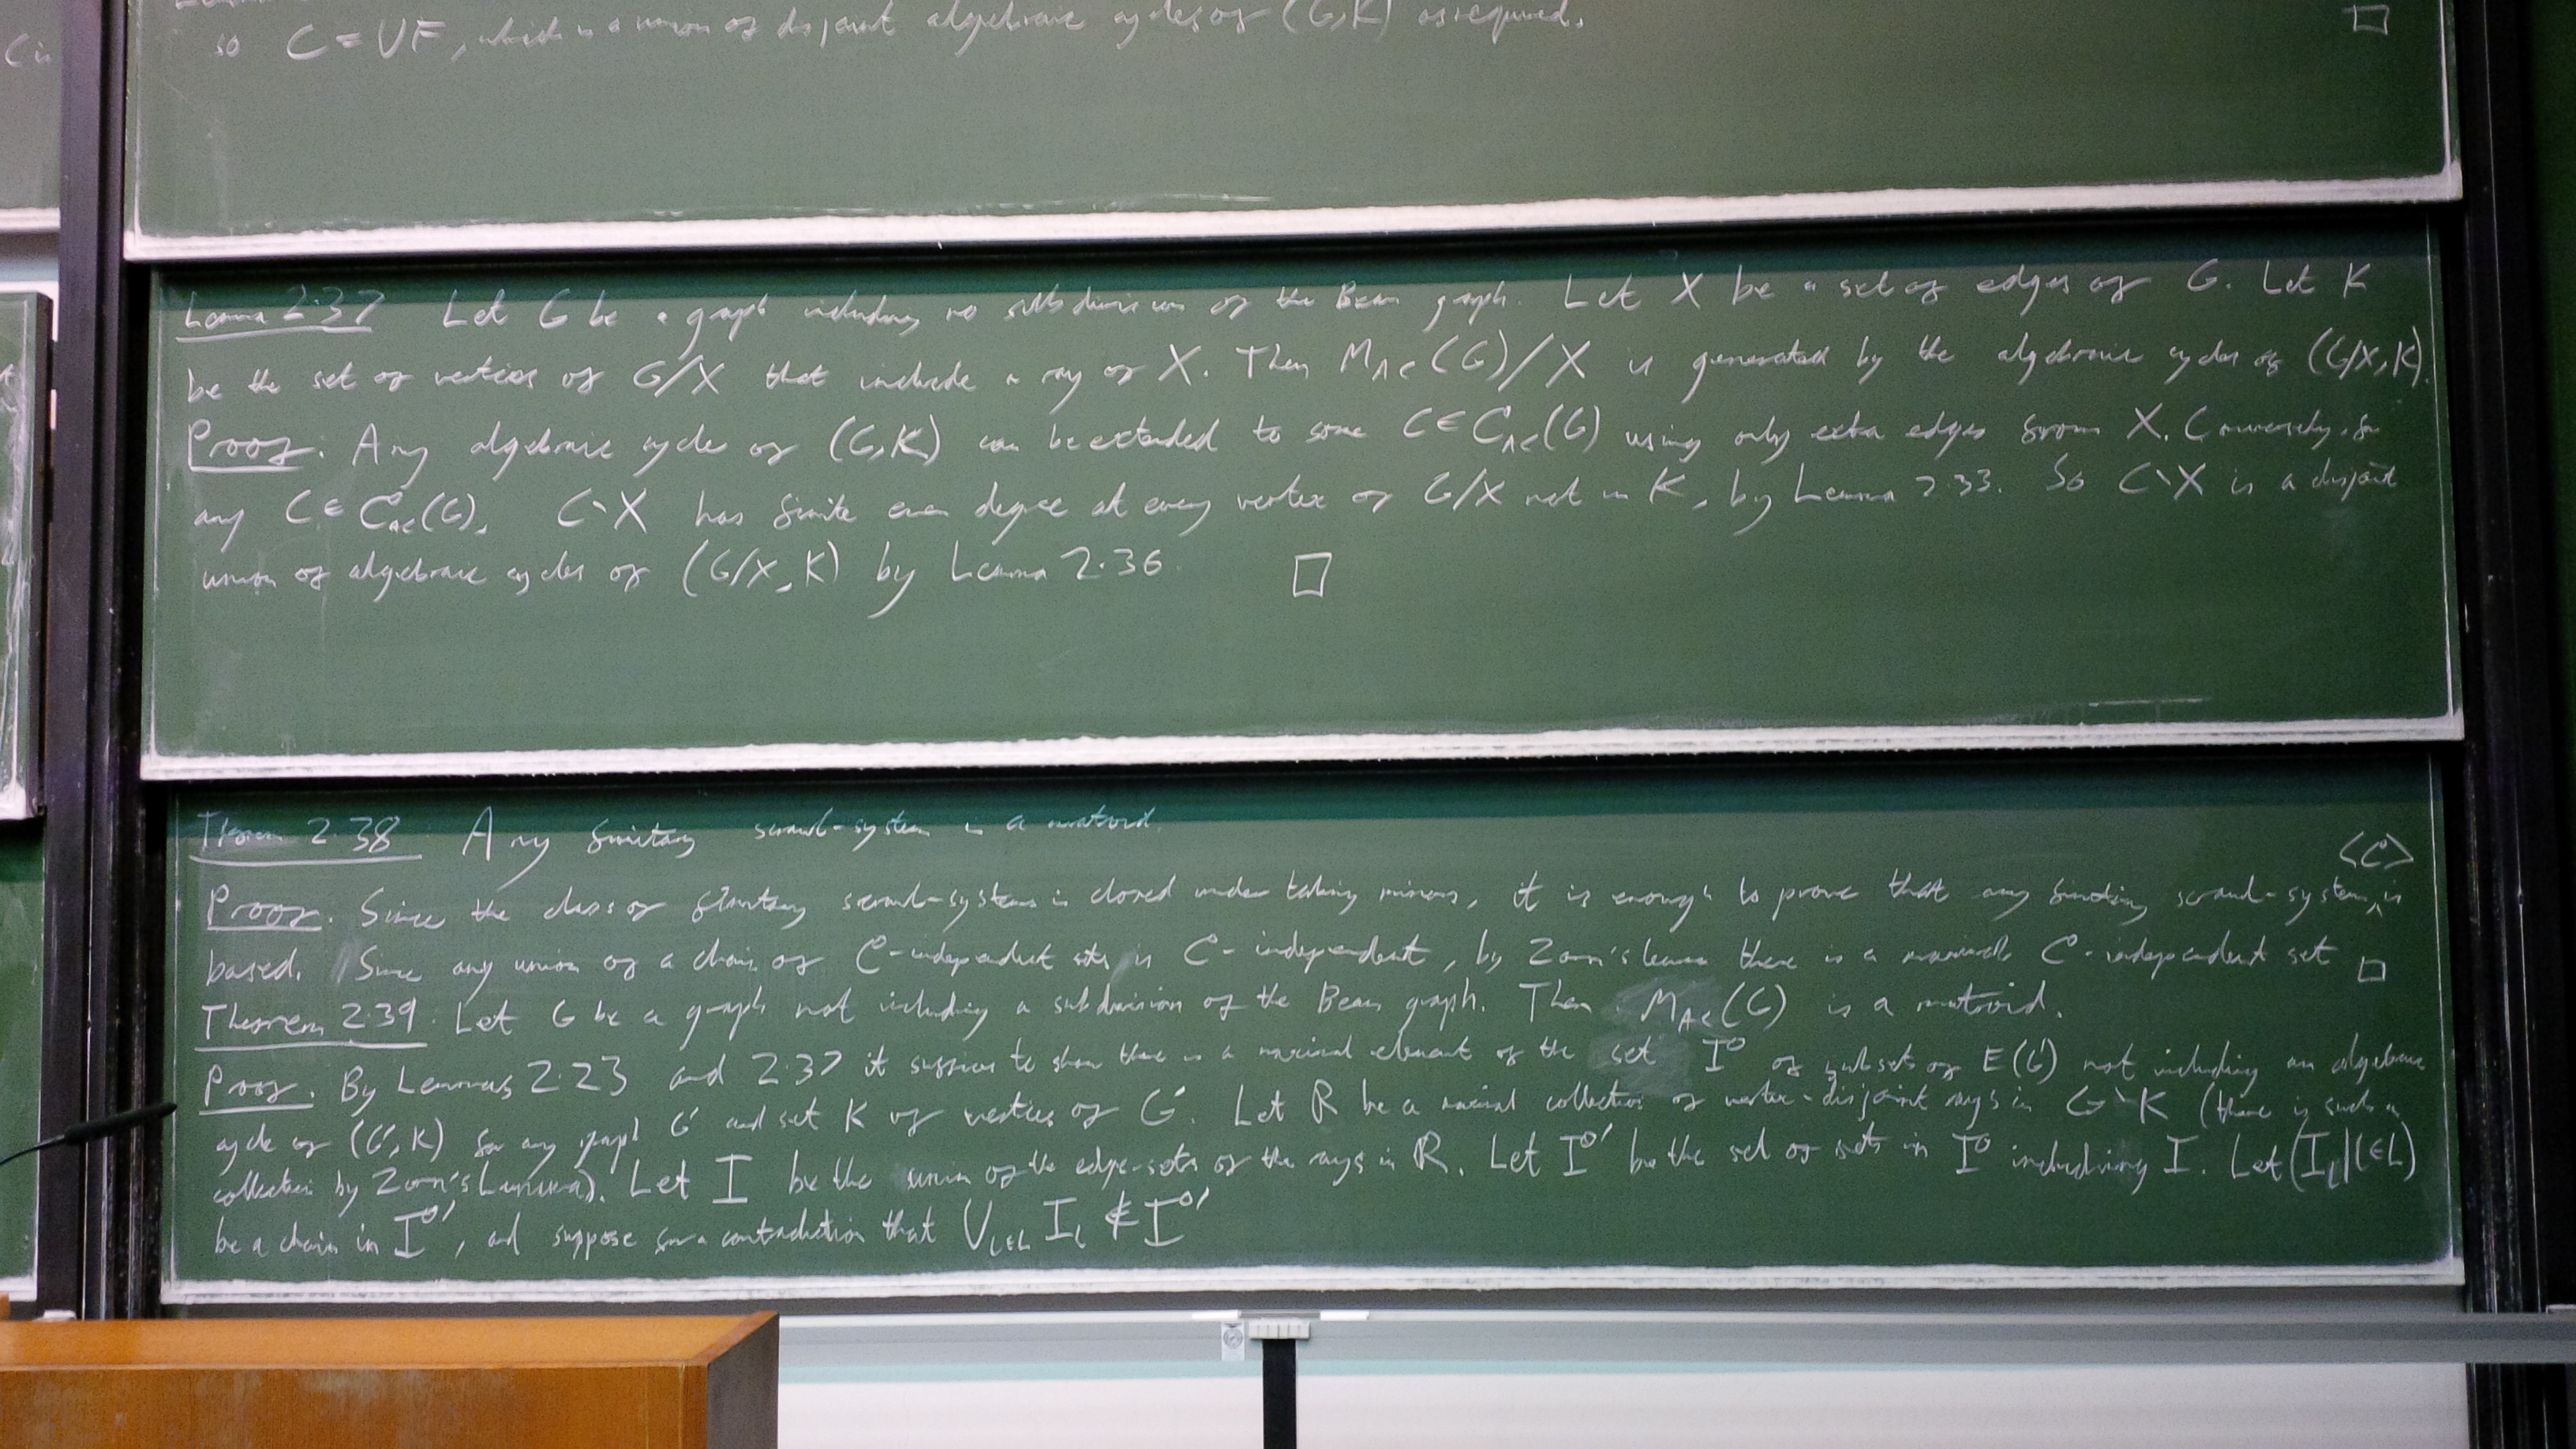 C is
so C = ∪F, which is a union of disjoint algebraic cycles of (G,K) as required. □
Lemma 2.37 Let G be a graph including no subdivision of the Bean graph. Let X be a set of edges of G. Let K
be the set of vertices of G/X that include a ray of X. Then M_AC(G)/X is generated by the algebraic cycles of (G/X,K).
Proof: Any algebraic cycle of (G,K) can be extended to some C∈C_AC(G) using only extra edges from X. Conversely, for
any C∈C_AC(G), C∖X has finite even degree at every vertex of G/X not in K, by Lemma 2.33. So C∖X is a disjoint
union of algebraic cycles of (G/X,K) by Lemma 2.36. □
Theorem 2.38 Any finitary scrawl-system is a matroid.
⟨C⟩
Proof. Since the class of finitary scrawl-systems is closed under taking minors, it is enough to prove that any finitary scrawl-system ‸ is
based. Since any union of a chain of C-independent sets is C-independent, by Zorn's lemma there is a maximal C-independent set □
Theorem 2.39. Let G be a graph not including a subdivision of the Bean graph. Then M_AC(G) is a matroid.
Proof. By Lemmas 2.23 and 2.37 it suffices to show there is a maximal element of the set I⁰ of subsets of E(G') not including an algebraic
cycle of (G',K) for any graph G' and set K of vertices of G'. Let R be a maximal collection of vertex-disjoint rays in G∖K (there is such a
collection by Zorn's Lemma). Let I be the union of the edge-sets of the rays in R. Let I⁰' be the set of sets in I⁰ including I. Let (I_l|l∈L)
be a chain in I⁰', and suppose for a contradiction that ∪_{l∈L} I_l ∉ I⁰'